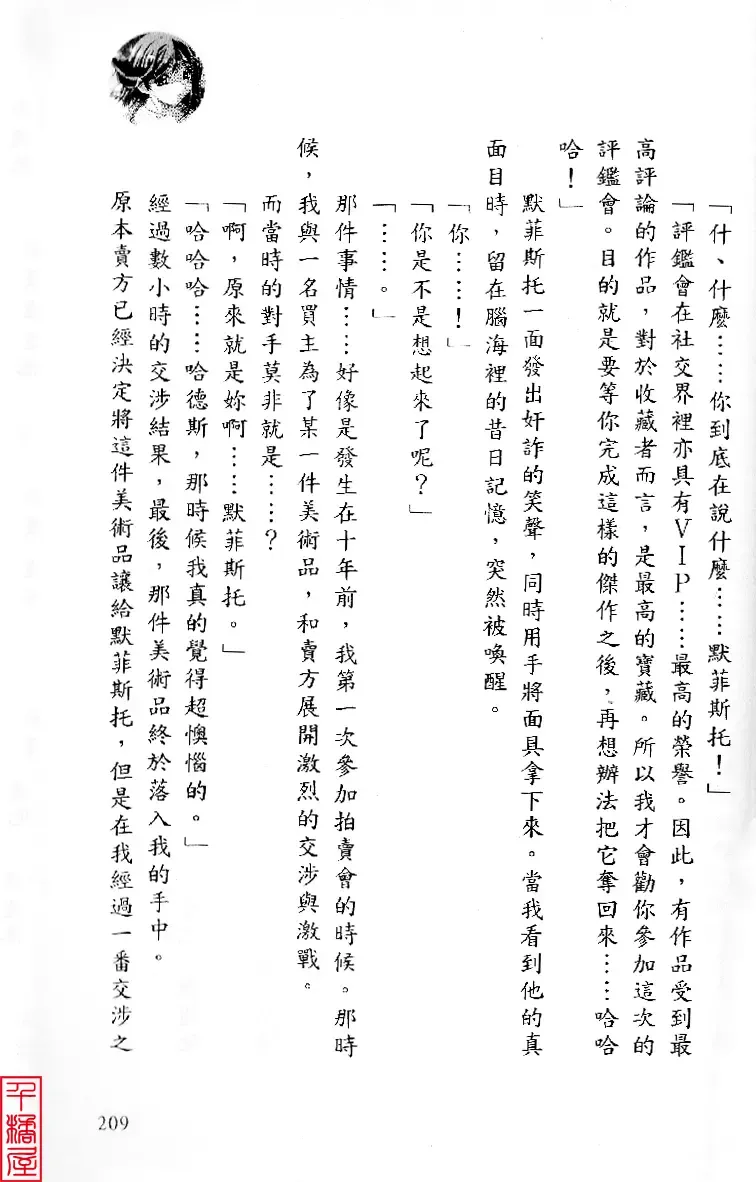 「什、什麼……你到底在說什麼……默菲斯托！」
「評鑑會在社交界裡亦具有ＶＩＰ……最高的榮譽。因此，有作品受到最
高評論的作品，對於收藏者而言，是最高的寶藏。所以我才會勸你參加這次的
評鑑會。目的就是要等你完成這樣的傑作之後，再想辦法把它奪回來……哈哈
哈！」
默菲斯托一面發出奸詐的笑聲，同時用手將面具拿下來。當我看到他的真
面目時，留在腦海裡的昔日記憶，突然被喚醒。
「你……！」
「你是不是想起來了呢？」
「……。」
那件事情……好像是發生在十年前，我第一次參加拍賣會的時候。那時
候，我與一名買主為了某一件美術品，和賣方展開激烈的交涉與激戰。
而當時的對手莫非就是……？
「啊，原來就是妳啊……默菲斯托。」
「哈哈哈……哈德斯，那時候我真的覺得超懊惱的。」
經過數小時的交涉結果，最後，那件美術品終於落入我的手中。
原本賣方已經決定將這件美術品讓給默菲斯托，但是在我經過一番交涉之
209
千橘屋